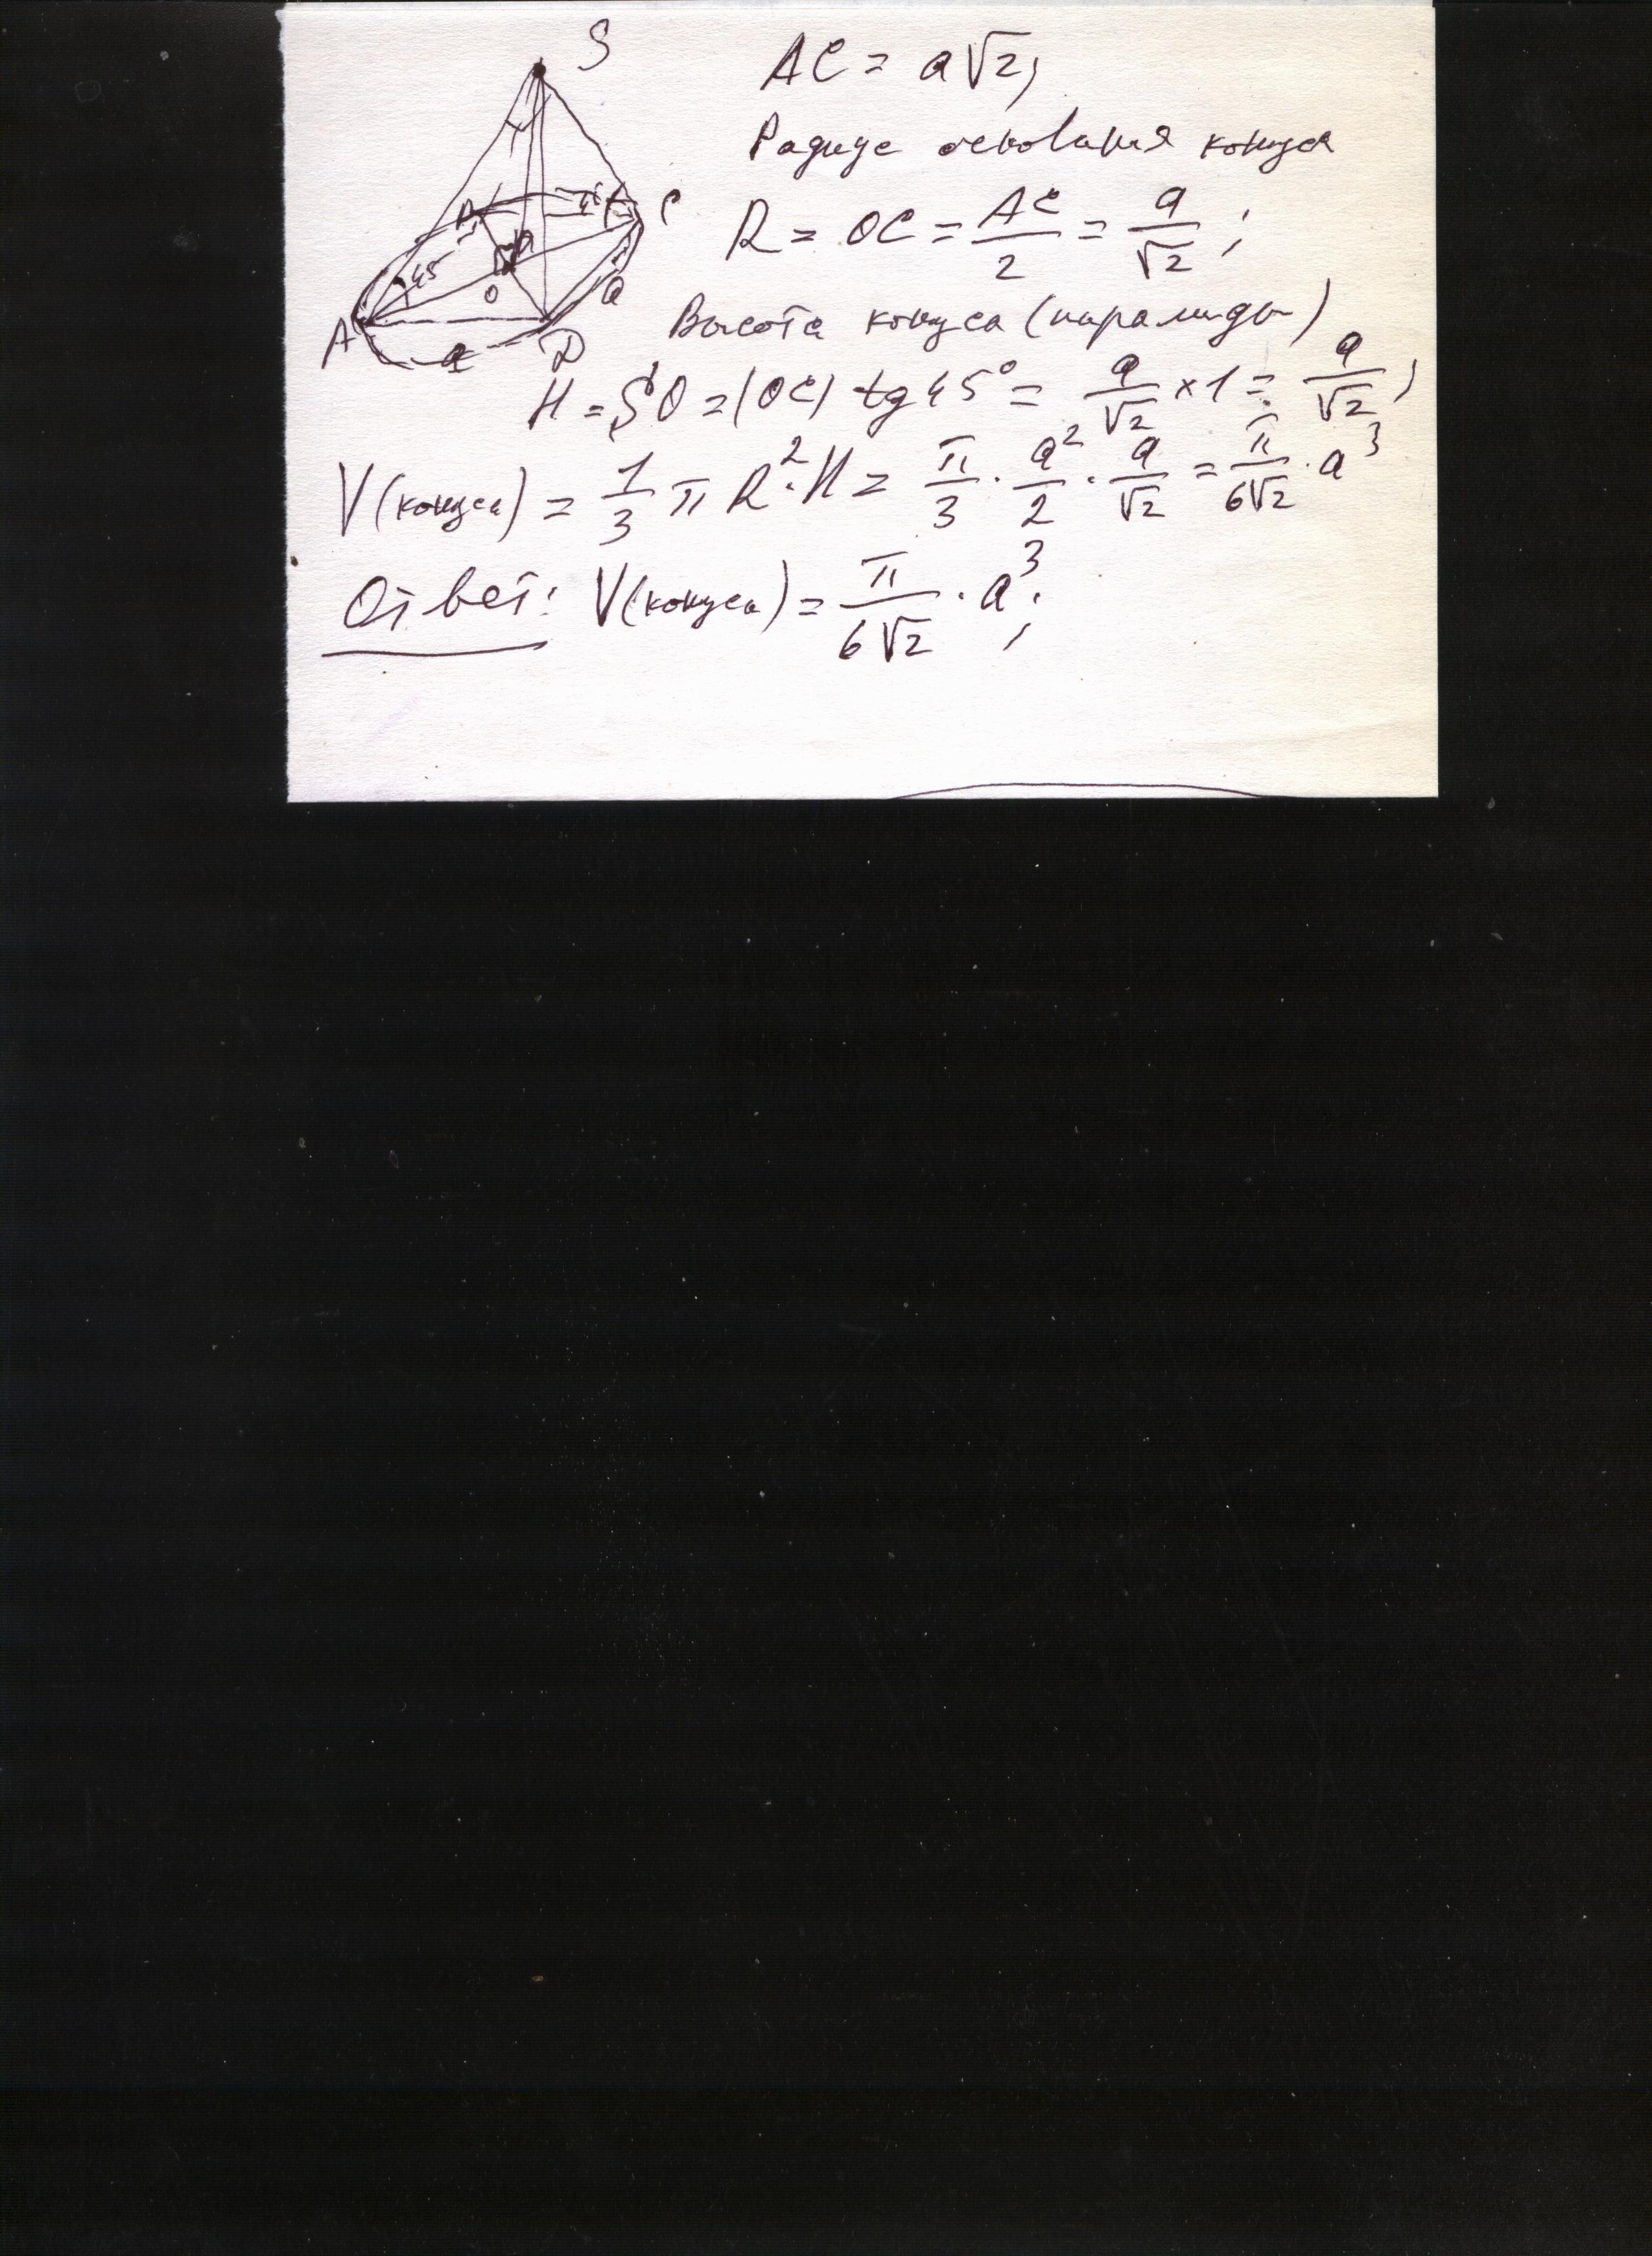 S
AC = a√2;
Радиус основания конуса
R = OC = AC/2 = a/√2;
45
C
O
a
A
a
D
Высота конуса (пирамиды)
H = SO = (OC) tg 45° = a/√2 × 1 = a/√2;
V(конуса) = 1/3 π R²·H = π/3 · a²/2 · a/√2 = π/6√2 · a³
Ответ: V(конуса) = π/6√2 · a³;